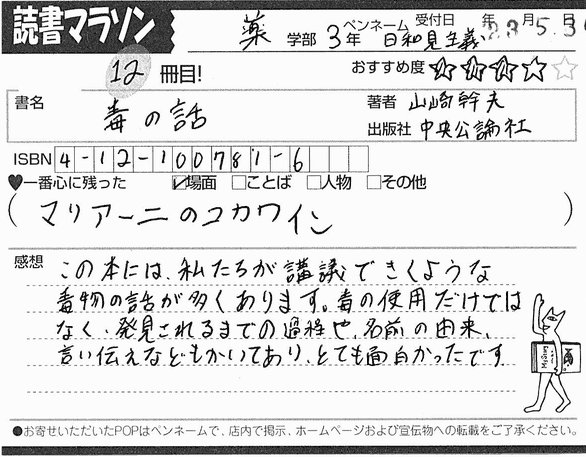 読書マラソン
薬 学部 3年 ペンネーム 日和見主義 受付日 年 月 5.3 日
12 冊目! おすすめ度
書名 毒の話 著者 山崎幹夫
出版社 中央公論社
ISBN 4-12-100781-6
♥一番心に残った ☑場面 □ことば □人物 □その他
(マリアーニのコカワイン)
感想 この本には、私たちが講議できくような
毒物の話が多くあります。毒の使用だけでは
なく、発見されるまでの過程や、名前の由来、
言い伝えなどもかいてあり、とても面白かったです
●お寄せいただいたPOPはペンネームで、店内で掲示、ホームページおよび宣伝物への転載をご了承ください。